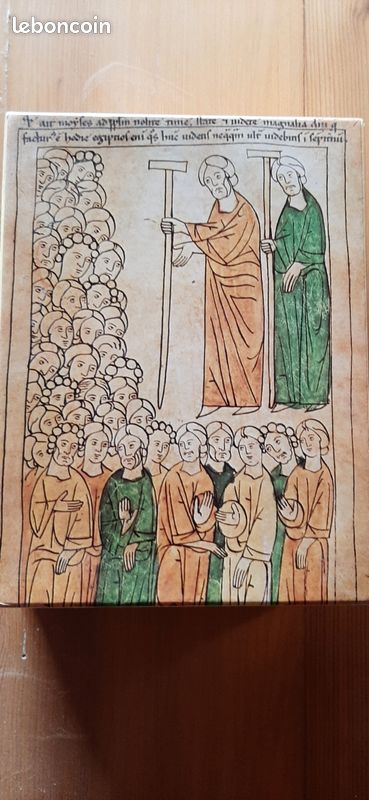 leboncoin
ait moyses ad pplm nolite time. state & videte magnalia dni q
factur' ē hodie egiptios eni q̄s nūc videtis neq̄q̄m ult' videbitis i sepitnū.